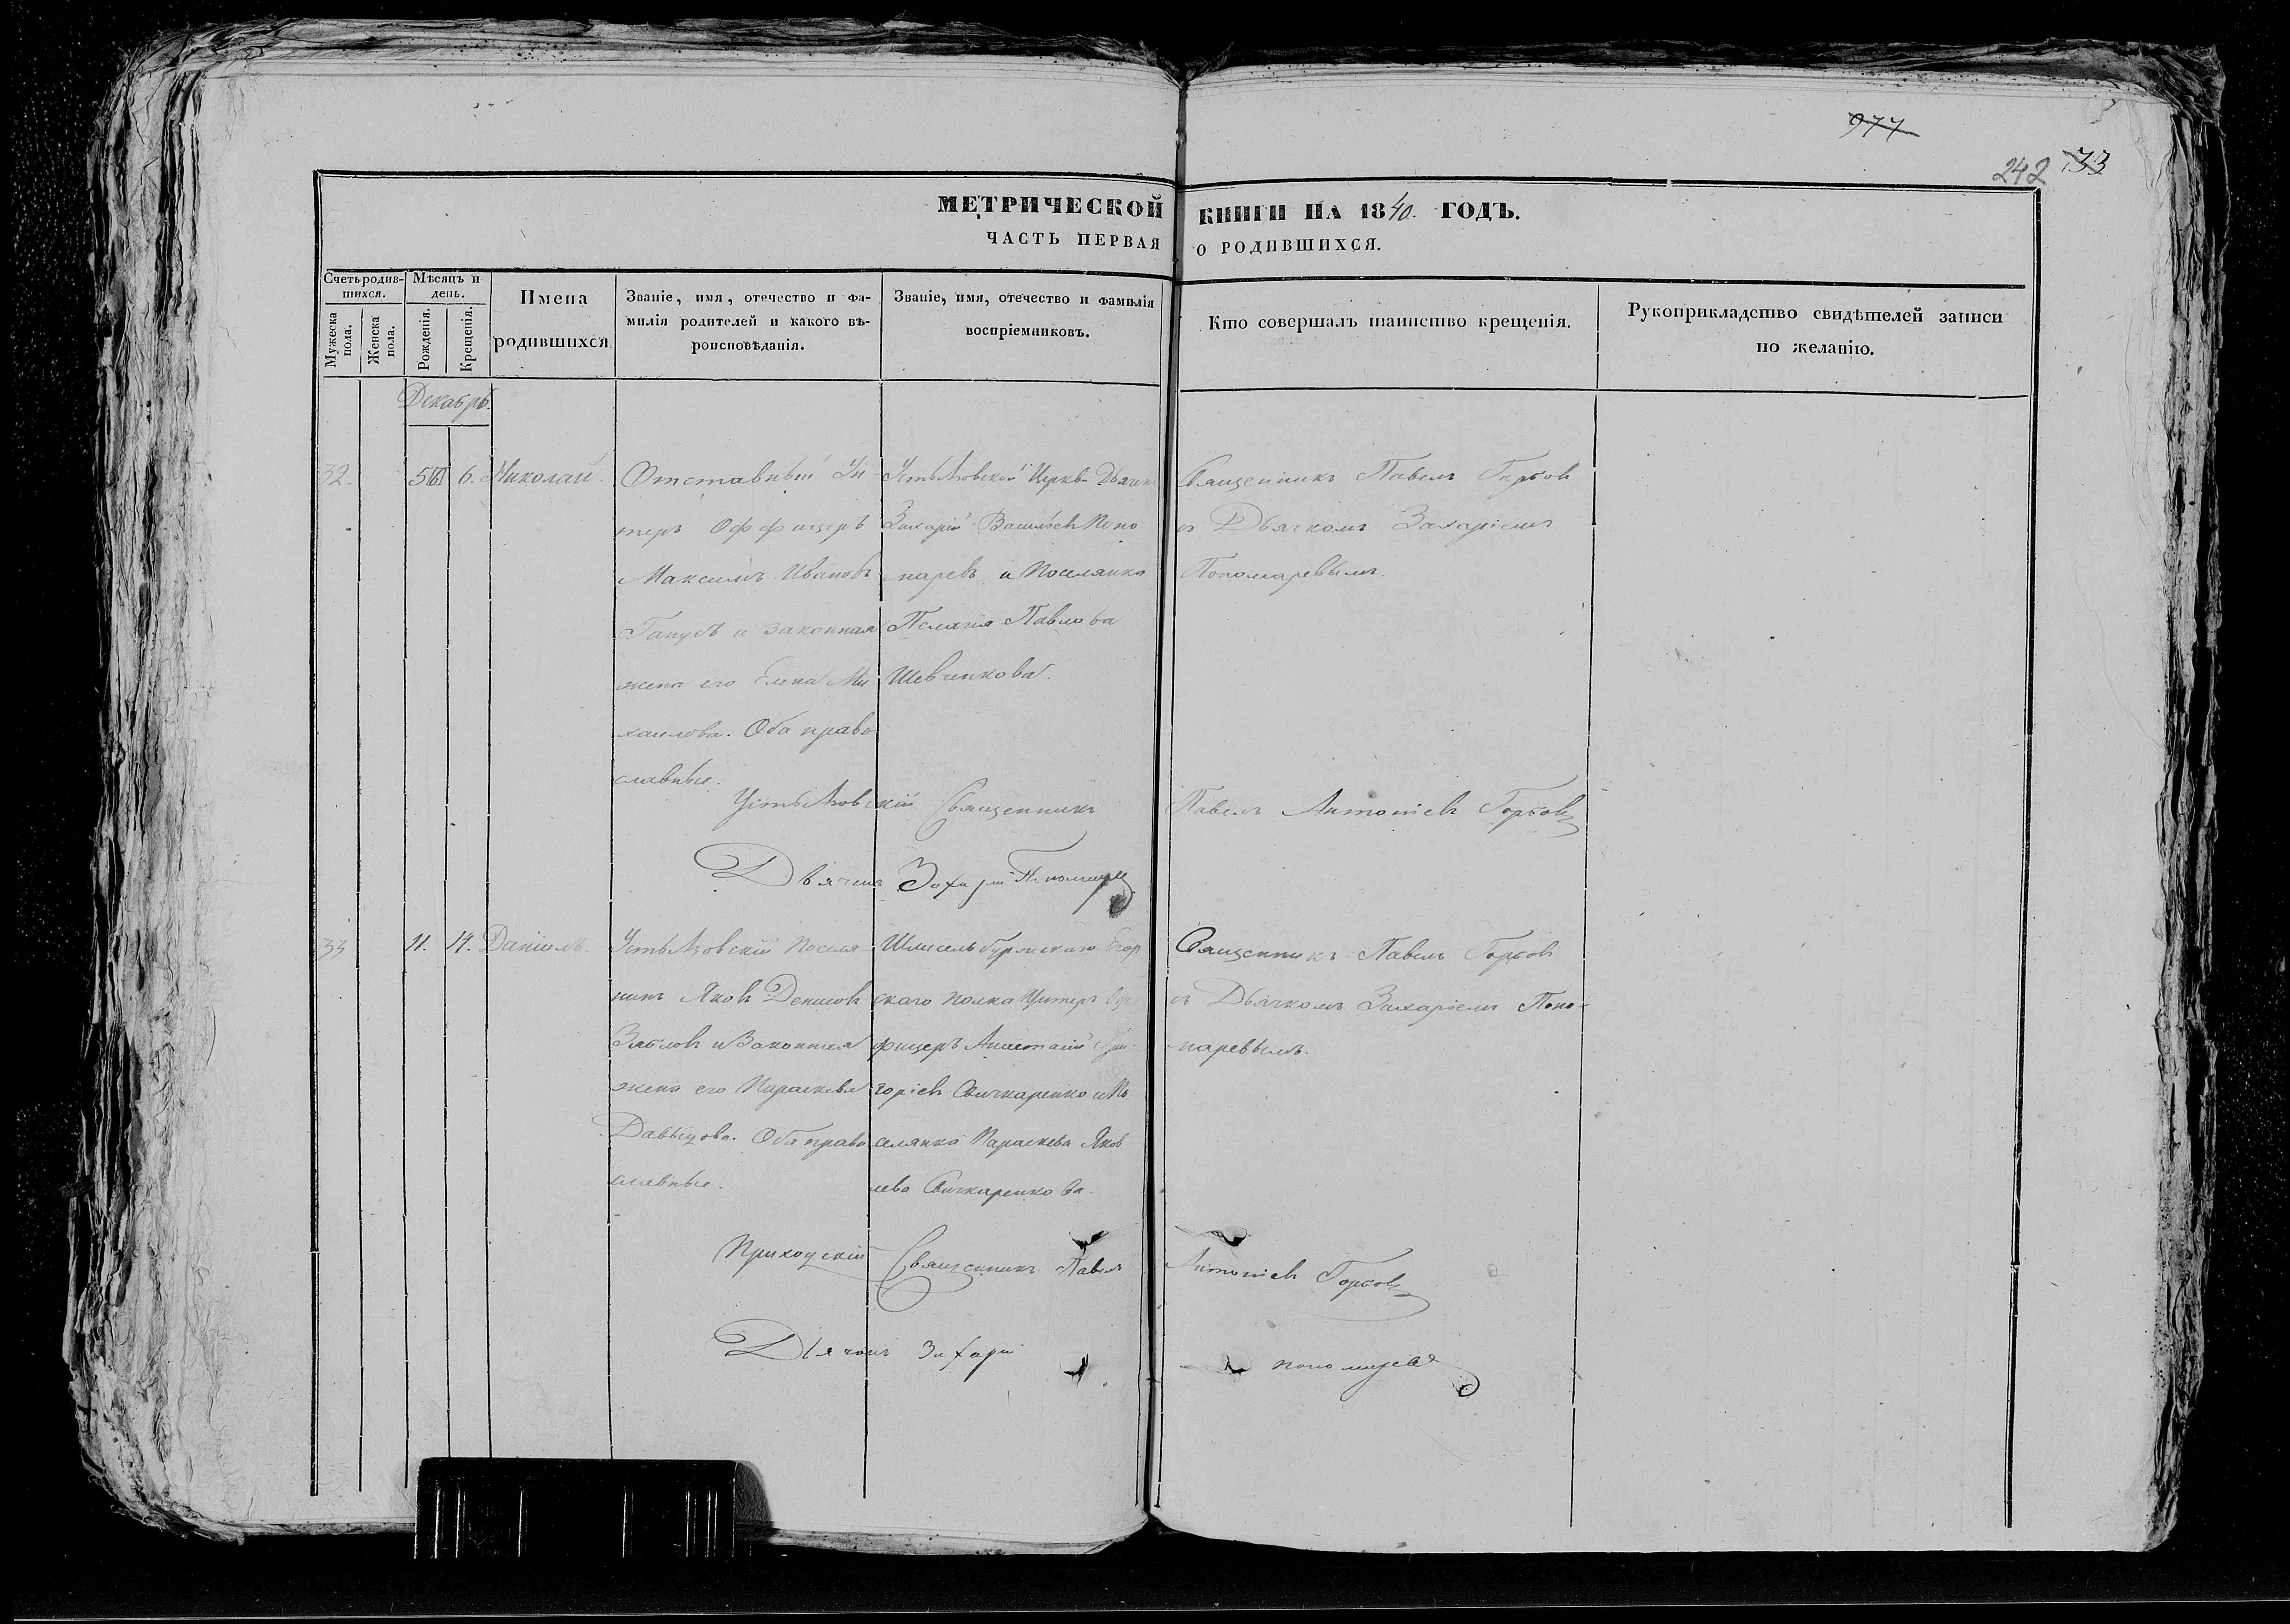 977
242 33
МЕТРИЧЕСКОЙ КНИГИ НА 1840. ГОДЪ.
ЧАСТЬ ПЕРВАЯ О РОДИВШИХСЯ.
Счетъ родив-
шихся.
Мужеска
пола.
Женска
пола.
Мѣсяцъ и
день.
Рожденія.
Крещенія.
Имена
родившихся.
Званіе, имя, отечество и фа-
милія родителей и какого вѣ-
роисповѣданія.
Званіе, имя, отечество и фамилія
воспріемниковъ.
Кто совершалъ таинство крещенія.
Рукоприкладство свидѣтелей записи
по желанію.
Декабрь.
32.
5
6.
Николай.
Отставный Ун
теръ Оффицеръ
Максимъ Ивановъ
и законная
жена его Елена Ми
хаилова. Оба право
славные.
Церкви Дьячекъ
Захарій Васильевъ Поно
маревъ и Поселянка
Пелагія Павлова
Шевченкова.
Священникъ Павелъ Горбовъ
съ Дьячкомъ Захаріемъ
Пономаревымъ.
Священникъ Павелъ Антоніевъ Горбовъ
Дьячекъ Захарій Пономаревъ
33
11.
14.
Даніилъ.
Поселя-
нинъ Яковъ Денисовъ
и Законная
жена его Параскева
Давыдова. Оба право
славные.
Шлисельбургскаго Егер
скаго полка Унтеръ Оф
фицеръ Анастасій Гри-
горіевъ Свичкаренко и По
селянка Параскева Яков
лева Свичкаренкова.
Священникъ Павелъ Горбовъ
съ Дьячкомъ Захаріемъ Поно-
маревымъ.
Приходскій Священникъ Павелъ Антоніевъ Горбовъ
Дьячокъ Захарій Пономаревъ